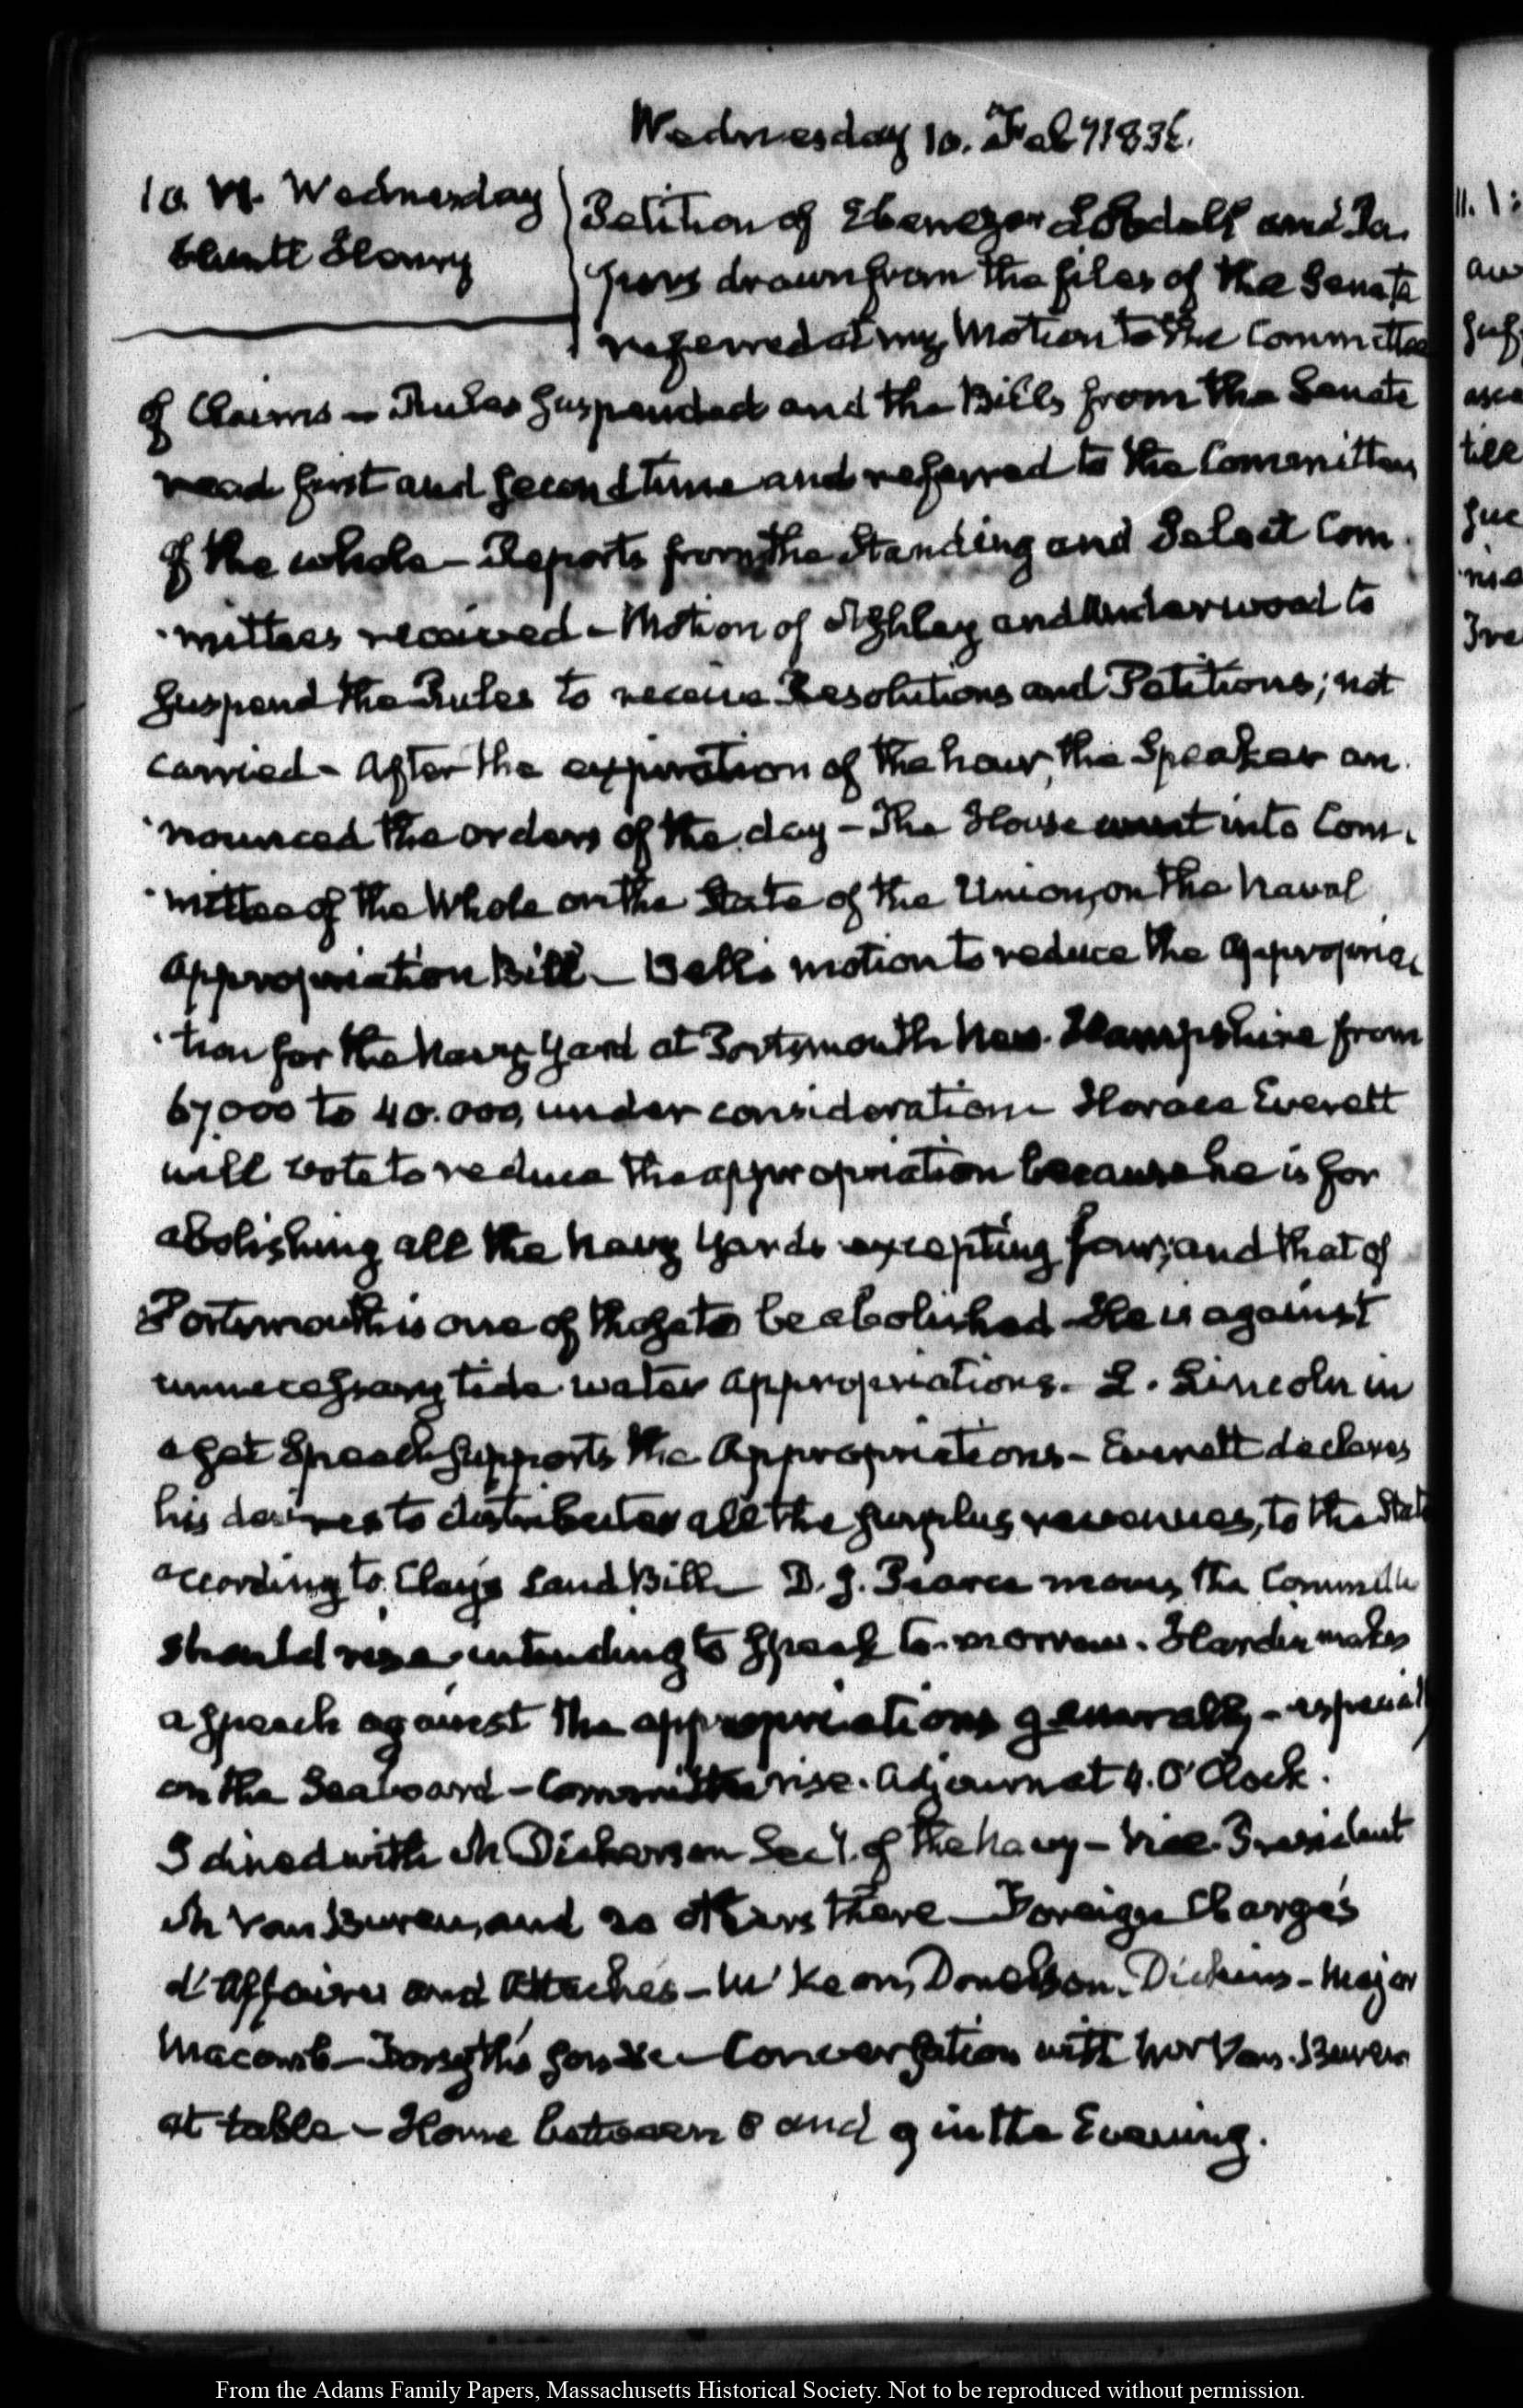 Wednesday 10. Feby 1836.
10. VI. Wednesday
Blunt Henry
Petition of Ebenezer Lobdell and Pa-
pers drawn from the files of the Senate
referred at my Motion to the Committee
of Claims – Rules suspended and the Bills from the Senate
read first and second time and referred to the Committee
of the whole – Reports from the Standing and Select Com-
mittees received – Motion of Ashley and Underwood to
suspend the Rules to receive Resolutions and Petitions; not
carried – After the expiration of the hour, the Speaker an-
nounced the orders of the day – The House went into Com-
mittee of the Whole on the State of the Union, on the Naval
appropriation Bill – Bell's motion to reduce the appropria-
tion for the Navy Yard at Portsmouth New-Hampshire from
67,000 to 40.000, under consideration Horace Everett
will vote to reduce the appropriation because he is for
abolishing all the Navy Yards excepting four; and that of
Portsmouth is one of those to be abolished – He is against
unnecessary tide-water appropriations. L. Lincoln in
a set Speech supports the Appropriations – Everett declares
his desires to distribute all the surplus revenues, to the State
according to Clay's Land Bill – D. J. Pearce moves the Committee
should rise intending to speak to-morrow. Hardin makes
a speech against the appropriations generally – especially
on the Seaboard – Committee rise. Adjourn at 4. O'Clock.
I dined with Mr Dickerson Secy. of the Navy – Vice-President
Mr Van Buren, and 20 others there – Foreign Chargés
d'Affaires and Attachés – McKeon, Donelson, Dickins – Major
Macomb – Forsyth's – Conversation with Mr Van-Buren
at table – Home between 8 and 9 in the Evening.
11. 1:
From the Adams Family Papers, Massachusetts Historical Society. Not to be reproduced without permission.